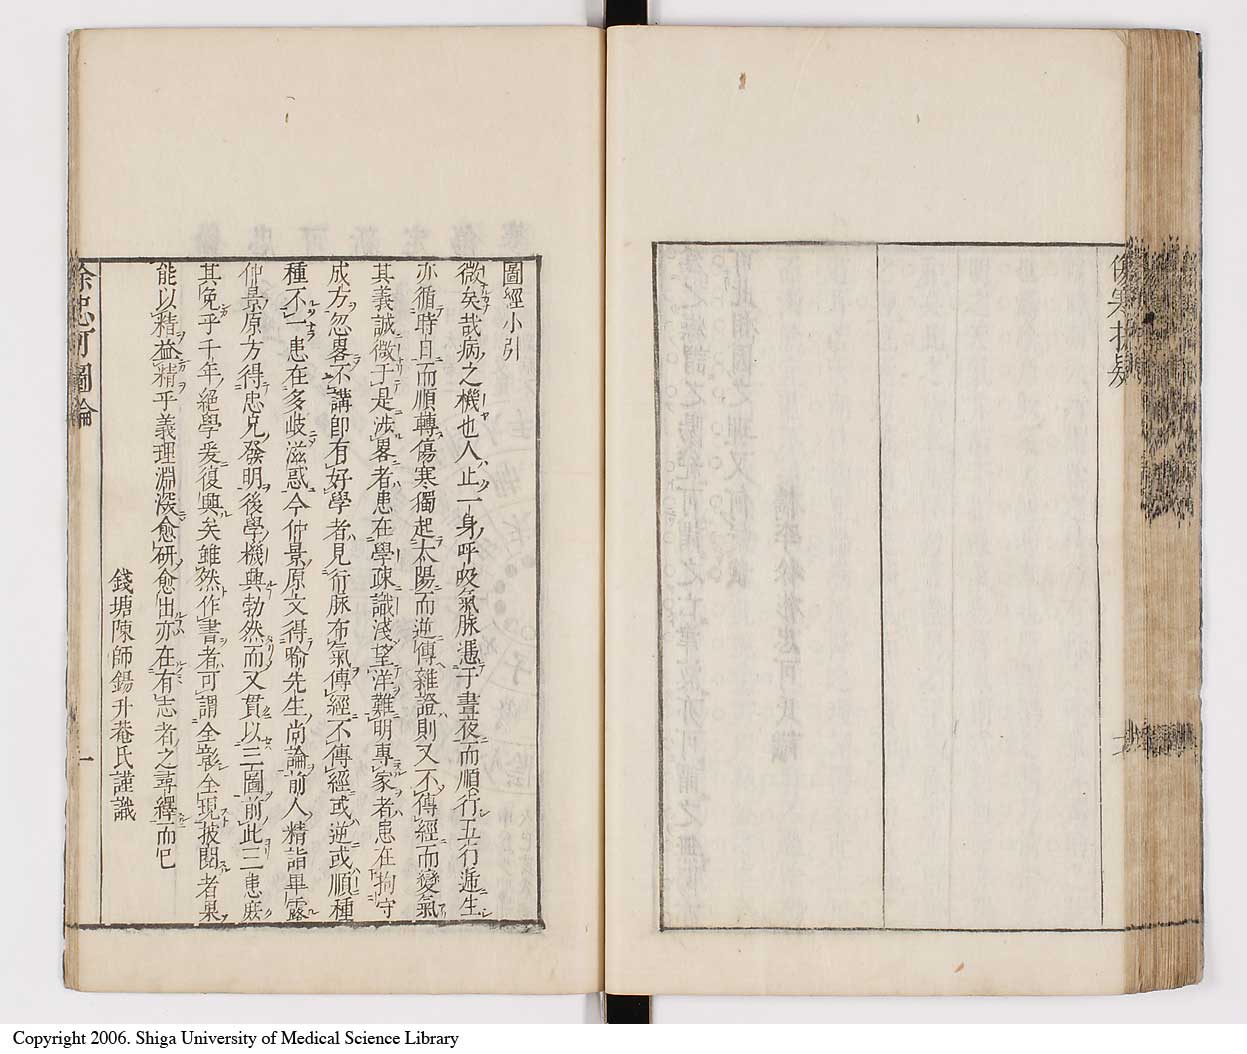 傷寒抉疑
圖經小引
微矣哉病之機也人止一身呼吸氣脉憑于晝夜而順行五行遞生
亦循時日而順轉傷寒獨起太陽而逆傳雜證則又不傳經而變氣
其義誠微于是涉畧者患在學疎識淺望洋難明專家者患在拘守
成方忽畧不講即有好學者見衍脉布氣傳經不傳經或逆或順種
種不一患在多歧滋惑今仲景原文得喻先生尚論前人精詣畢露
仲景原方得忠兄發明後學機興勃然而又貫以三圖前此三患庶
其免乎千年絕學爰復興矣雖然作書者可謂全彰全現披閱者果
能以精益精乎義理淵深愈研愈出亦在有志者之尋繹而已
錢塘陳師錫升菴氏謹識
徐忠可圖論
一
Copyright 2006. Shiga University of Medical Science Library